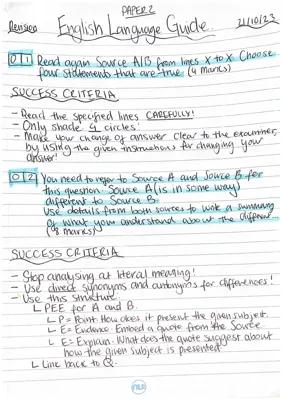 PAPER 2
Revision English Language Guide. 21/10/23
0 1 Read again Source A/B from lines X to X. Choose
four statements that are true. (4 marks)
SUCCESS CRITERIA
- Read the specified lines CAREFULLY!
- Only shade 4 circles!
- Make your change of answer clear to the examiner
by using the given instructions for changing your
answer!
0 2 You need to refer to Source A and Source B for
this question. Source A (is in some way)
different to Source B.
Use details from both sources to write a summary
of what you understand about the differen...
(8 marks)
SUCCESS CRITERIA
- Stop analysing at literal meaning!
- Use direct synonyms and antonyms for differences!
- Use this structure
↳ PEE for A and B.
↳ P = Point. How does it present the given subject.
↳ E = Evidence. Embed a quote from the Source
↳ E = Explain. What does the quote suggest about
how the given subject is presented
↳ Line back to Q.